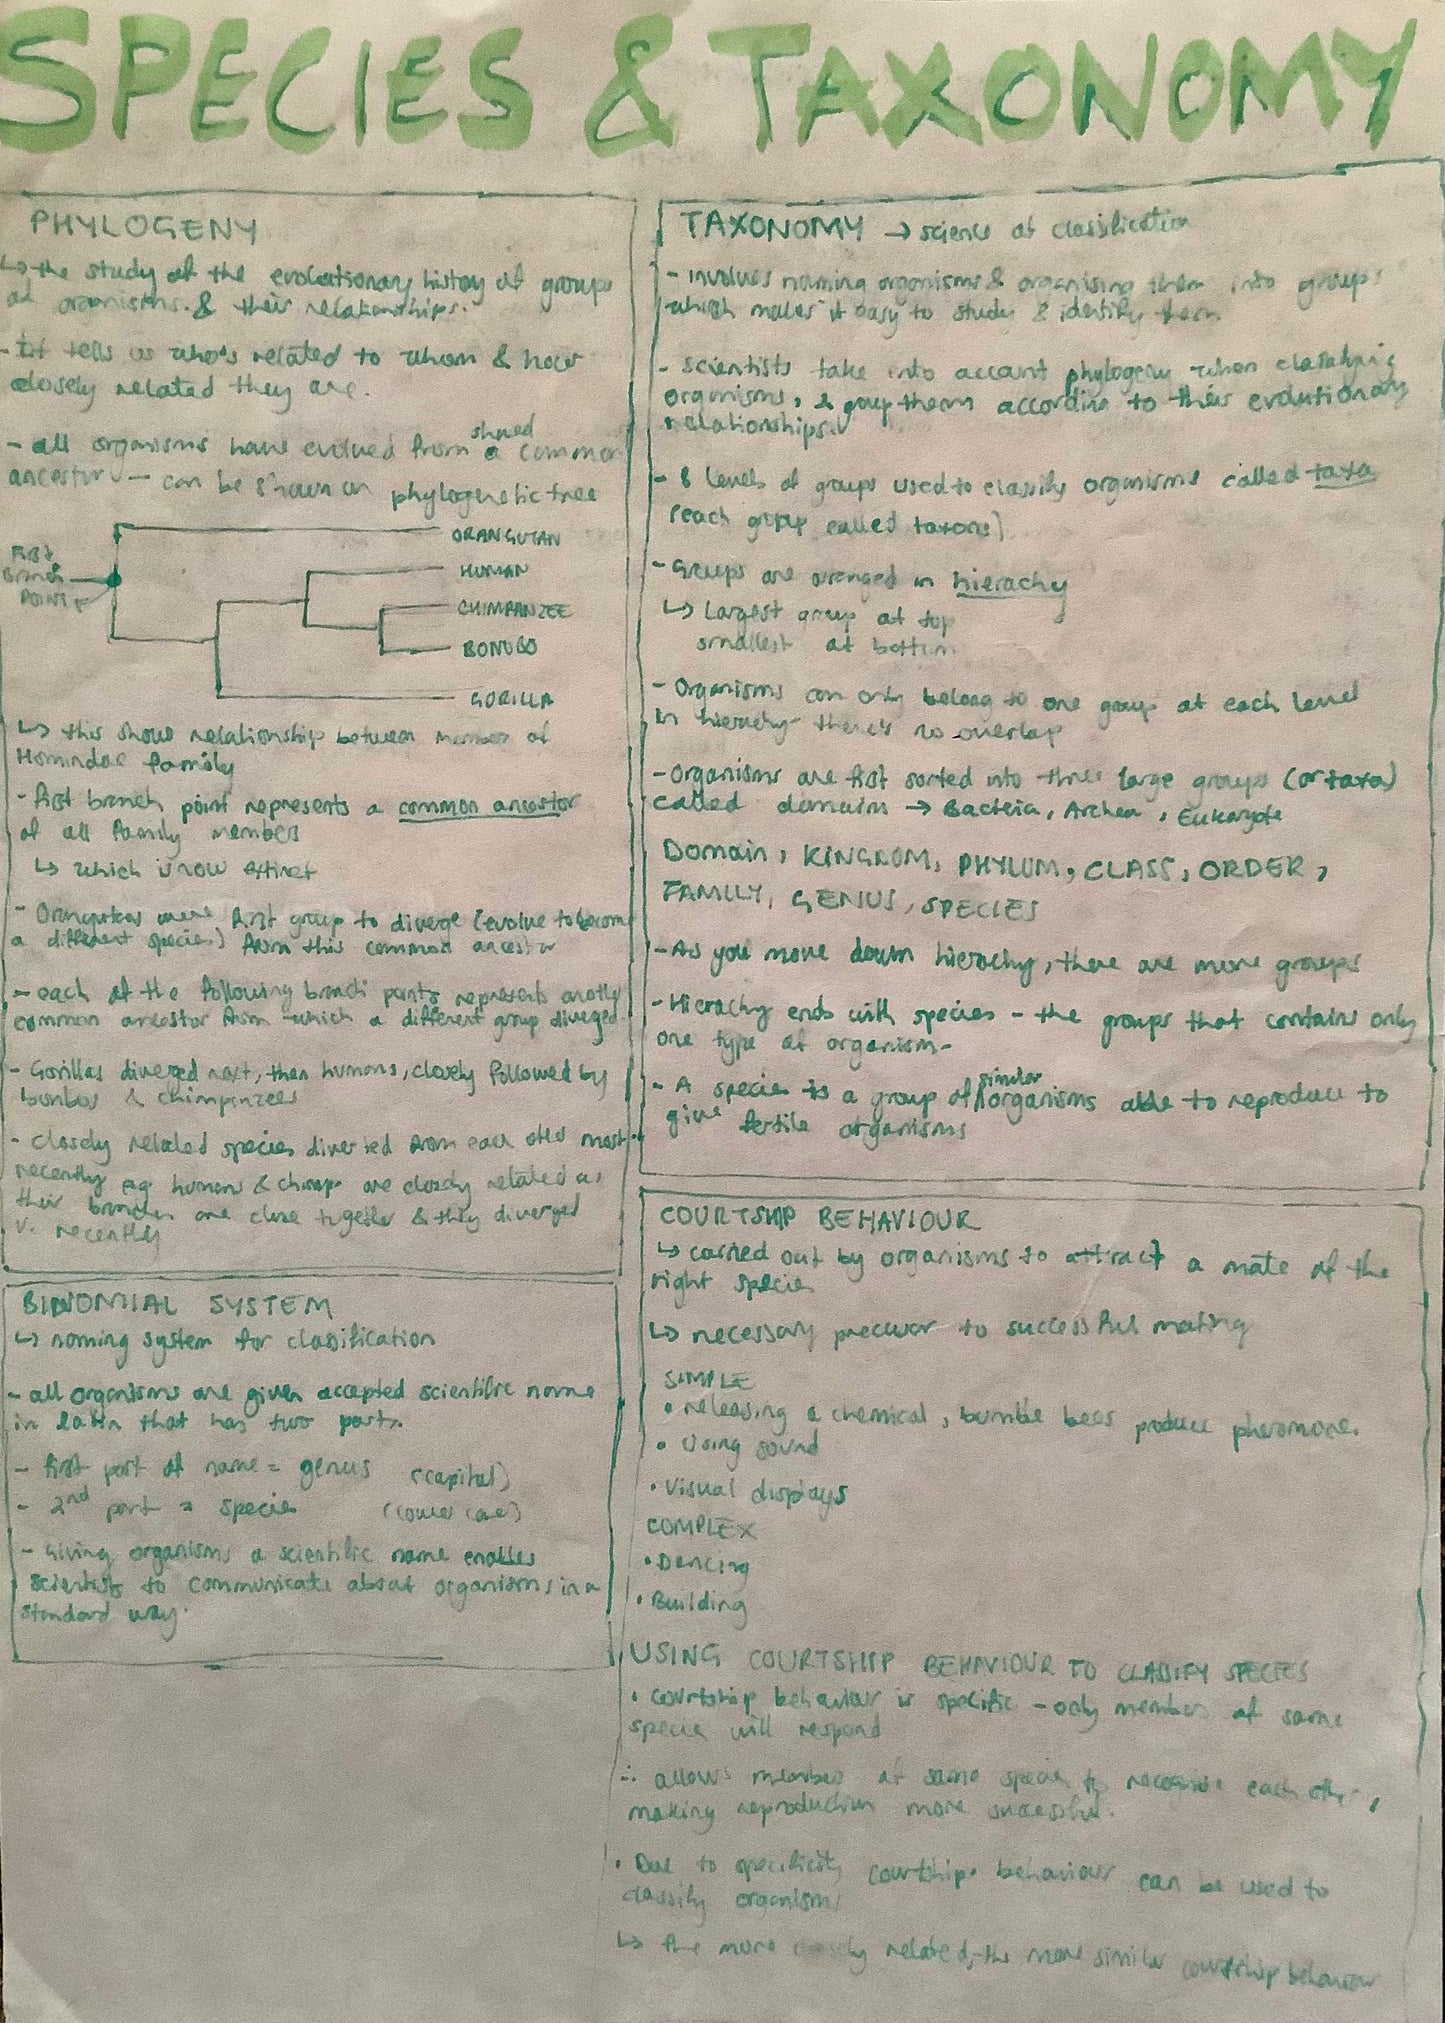 SPECIES & TAXONOMY
PHYLOGENY
↳ the study of the evolutionary history of groups
of organisms. & their relationships.
- It tells us who's related to whom & how
closely related they are.
- all organisms have evolved from shared a common
ancestor - can be shown on phylogenetic tree
FIRST
BRANCH
POINT
ORANGUTAN
HUMAN
CHIMPANZEE
BONOBO
GORILLA
↳ this shows relationship between member of
Homindae family
- first branch point represents a common ancestor
of all family members
↳ which is now extinct
- Orangutans were first group to diverge (evolve to become
a different species) from this common ancestor
- each of the following branch points represents another
common ancestor from which a different group diverged
- Gorillas diverged next, then humans, closely followed by
bonbos & chimpanzees
- closely related species diverted from each other most
recently e.g. humans & chimps are closely related as
their branches are close together & they diverged
v. recently
BINOMIAL SYSTEM
↳ naming system for classification
- all organisms are given accepted scientific name
in latin that has two parts.
- first part of name = genus (capital)
- 2nd part = species (lower case)
- Giving organisms a scientific name enables
scientists to communicate about organisms in a
standard way.
TAXONOMY → science of classification
- involves naming organisms & organising them into groups
which makes it easy to study & identify them
- scientists take into account phylogeny when classifying
organisms, & group them according to their evolutionary
relationships.
- 8 levels of groups used to classify organisms called taxa
(each group called taxons)
- Groups are arranged in hierachy
↳ Largest group at top
smallest at bottom
- Organisms can only belong to one group at each level
in hierachy - there's no overlap
- Organisms are first sorted into three large groups (or taxa)
called domains → Bacteria, Archea, Eukaryote
Domain, KINGDOM, PHYLUM, CLASS, ORDER,
FAMILY, GENUS, SPECIES
- As you move down hierachy, there are more groups
- Hierachy ends with species - the groups that contains only
one type of organism-
- A species is a group of similar organisms able to reproduce to
give fertile organisms
COURTSHIP BEHAVIOUR
↳ carried out by organisms to attract a mate of the
right species
↳ necessary precursor to successful mating
SIMPLE
• releasing a chemical, bumble bees produce pheromone.
• Using sound
• Visual displays
COMPLEX
• Dancing
• Building
USING COURTSHIP BEHAVIOUR TO CLASSIFY SPECIES
• courtship behaviour is specific - only members of same
species will respond
∴ allows members of same species to recognise each other,
making reproduction more sucessful.
• Due to specificity courtship behaviour can be used to
classify organisms
↳ the more closely related, the more similar courtship behaviour